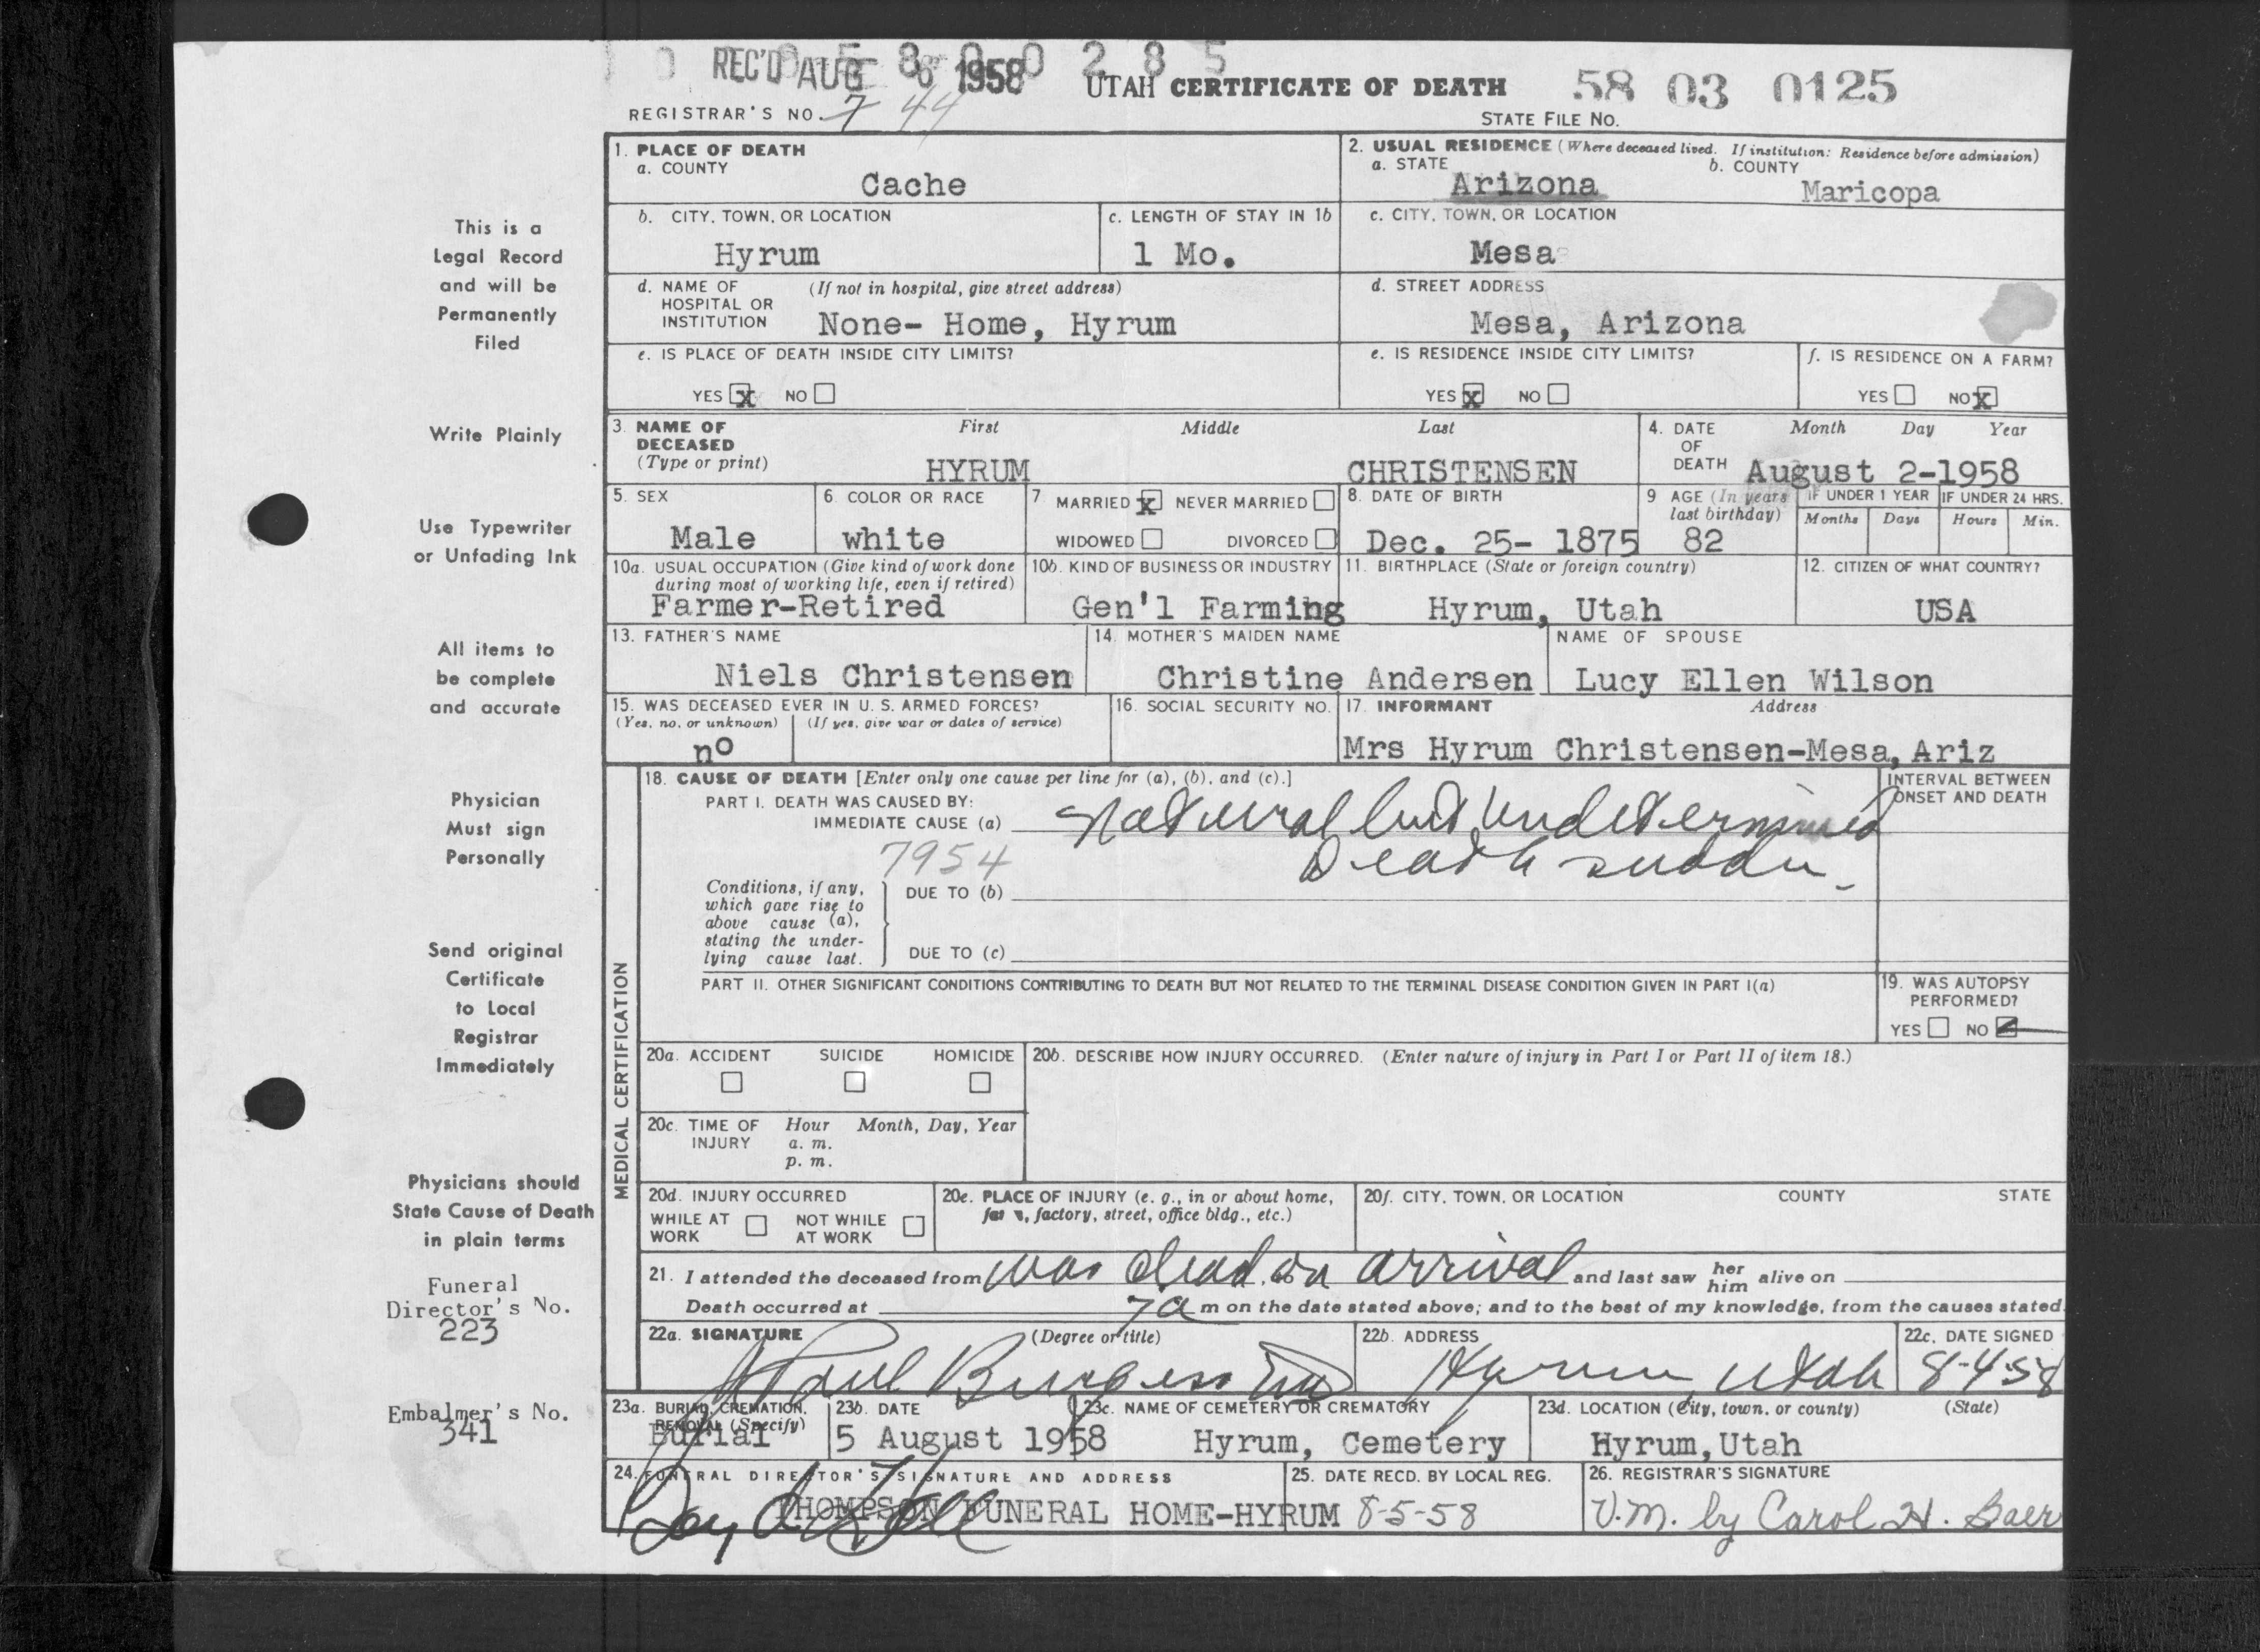 REC'D AUG 8 1958
0 2 8 5
UTAH CERTIFICATE OF DEATH
58 03 0125
REGISTRAR'S NO. 7 44
STATE FILE NO.
1. PLACE OF DEATH
a. COUNTY
Cache
2. USUAL RESIDENCE (Where deceased lived. If institution: Residence before admission)
a. STATE b. COUNTY
Arizona Maricopa
b. CITY, TOWN, OR LOCATION
Hyrum
c. LENGTH OF STAY IN 1b
1 Mo.
c. CITY, TOWN, OR LOCATION
Mesa
d. NAME OF HOSPITAL OR INSTITUTION (If not in hospital, give street address)
None- Home, Hyrum
d. STREET ADDRESS
Mesa, Arizona
e. IS PLACE OF DEATH INSIDE CITY LIMITS?
YES X NO
e. IS RESIDENCE INSIDE CITY LIMITS?
YES X NO
f. IS RESIDENCE ON A FARM?
YES NO X
3. NAME OF DECEASED (Type or print)
First Middle Last
HYRUM CHRISTENSEN
4. DATE OF DEATH
Month Day Year
August 2-1958
5. SEX
Male
6. COLOR OR RACE
white
7 MARRIED X NEVER MARRIED
WIDOWED DIVORCED
8. DATE OF BIRTH
Dec. 25- 1875
9 AGE (In years last birthday)
82
IF UNDER 1 YEAR
Months Days
IF UNDER 24 HRS.
Hours Min.
10a. USUAL OCCUPATION (Give kind of work done during most of working life, even if retired)
Farmer-Retired
10b. KIND OF BUSINESS OR INDUSTRY
Gen'l Farming
11. BIRTHPLACE (State or foreign country)
Hyrum, Utah
12. CITIZEN OF WHAT COUNTRY?
USA
13. FATHER'S NAME
Niels Christensen
14. MOTHER'S MAIDEN NAME
Christine Andersen
NAME OF SPOUSE
Lucy Ellen Wilson
15. WAS DECEASED EVER IN U. S. ARMED FORCES?
(Yes, no, or unknown) (If yes, give war or dates of service)
no
16. SOCIAL SECURITY NO.
17. INFORMANT Address
Mrs Hyrum Christensen-Mesa, Ariz
MEDICAL CERTIFICATION
18. CAUSE OF DEATH [Enter only one cause per line for (a), (b), and (c).]
INTERVAL BETWEEN ONSET AND DEATH
PART I. DEATH WAS CAUSED BY:
IMMEDIATE CAUSE (a) Natural but undetermined
7954 Death sudden
Conditions, if any, which gave rise to above cause (a), stating the underlying cause last.
DUE TO (b)
DUE TO (c)
PART II. OTHER SIGNIFICANT CONDITIONS CONTRIBUTING TO DEATH BUT NOT RELATED TO THE TERMINAL DISEASE CONDITION GIVEN IN PART I(a)
19. WAS AUTOPSY PERFORMED?
YES NO
20a. ACCIDENT SUICIDE HOMICIDE
20b. DESCRIBE HOW INJURY OCCURRED. (Enter nature of injury in Part I or Part II of item 18.)
20c. TIME OF INJURY Hour Month, Day, Year
a. m.
p. m.
20d. INJURY OCCURRED
WHILE AT WORK NOT WHILE AT WORK
20e. PLACE OF INJURY (e. g., in or about home, farm, factory, street, office bldg., etc.)
20f. CITY, TOWN, OR LOCATION COUNTY STATE
21. I attended the deceased from was dead on arrival and last saw her him alive on
Death occurred at 7 a m on the date stated above; and to the best of my knowledge, from the causes stated.
22a. SIGNATURE (Degree or title)
Paul Burgess MD
22b. ADDRESS
Hyrum Utah
22c. DATE SIGNED
8-4-58
23a. BURIAL, CREMATION, REMOVAL (Specify)
Burial
23b. DATE
5 August 1958
23c. NAME OF CEMETERY OR CREMATORY
Hyrum, Cemetery
23d. LOCATION (City, town, or county) (State)
Hyrum,Utah
24. FUNERAL DIRECTOR'S SIGNATURE AND ADDRESS
THOMPSON FUNERAL HOME-HYRUM
25. DATE RECD. BY LOCAL REG.
8-5-58
26. REGISTRAR'S SIGNATURE
V.M. by Carol H. Baer
This is a
Legal Record
and will be
Permanently
Filed
Write Plainly
Use Typewriter
or Unfading Ink
All items to
be complete
and accurate
Physician
Must sign
Personally
Send original
Certificate
to Local
Registrar
Immediately
Physicians should
State Cause of Death
in plain terms
Funeral
Director's No.
223
Embalmer's No.
341